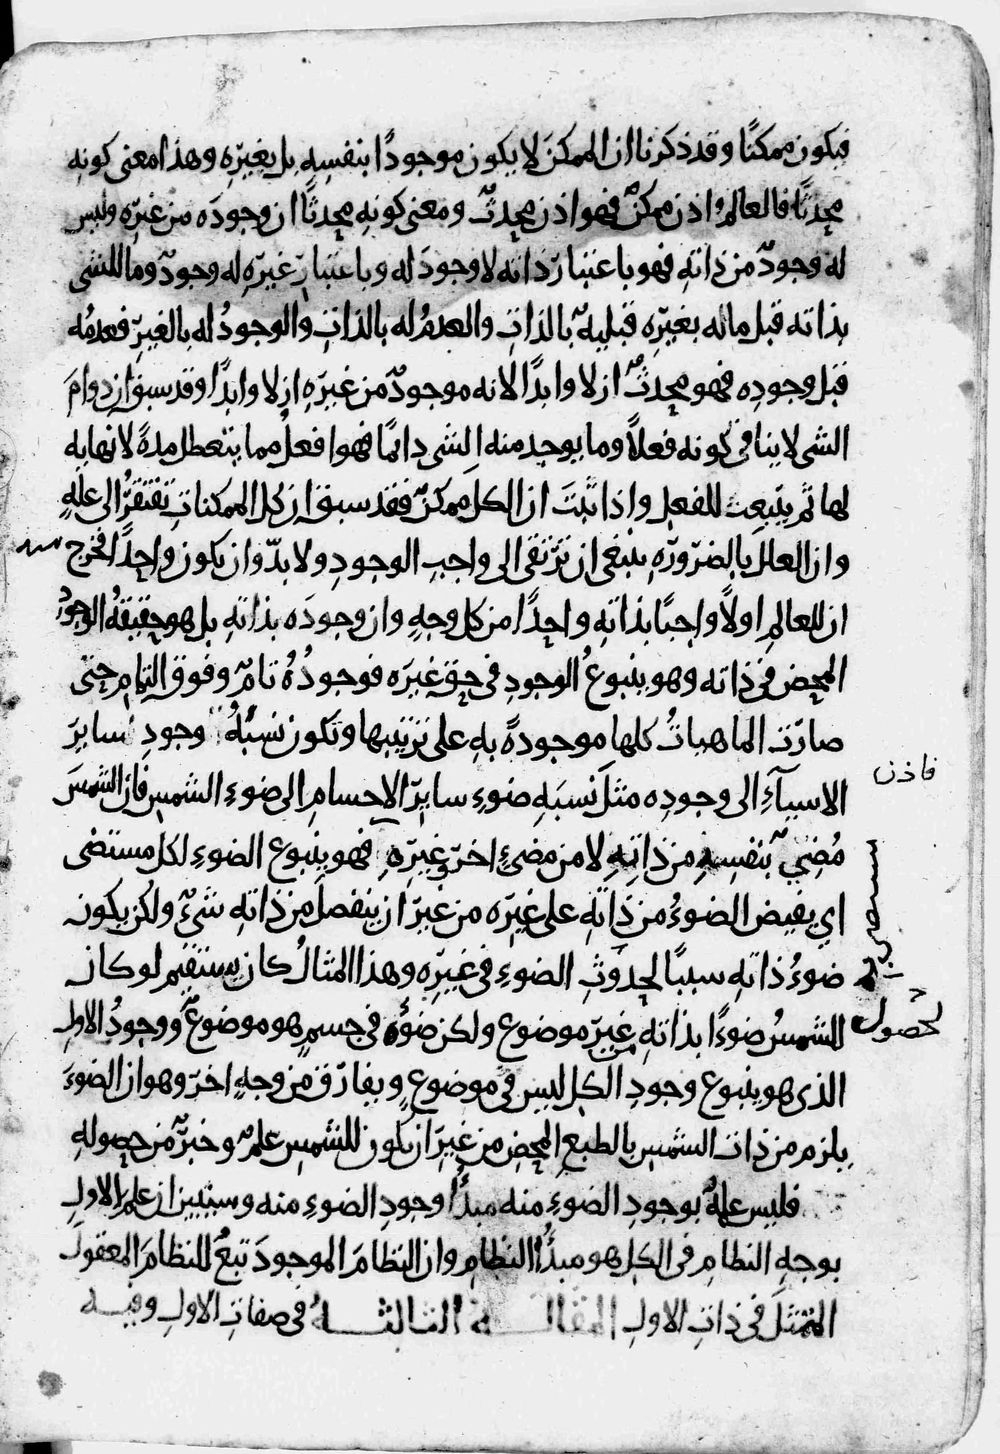 فيكون ممكنًا وقد ذكرنا ان الممكنَ لا يكون موجودًا بنفسِهِ بل بغيرِه وهذا معنى كونِه
محدثًا فالعالم اذن ممكنٌ فهو اذن محدثٌ ومعنى كونِه محدثًا ان وجودَه من غيرِه وليس
له وجودٌ من ذاتِه فهو باعتبار ذاته لا وجودَ له وباعتبار غيرِه له وجودٌ وما للشى
بذاته قبل ماله بغيرِه قبليةً بالذاتِ والعدمُ له بالذاتِ والوجودُ له بالغيرِ فعدمُه
قبل وجودِه فهو محدثٌ ازلا وابدًا لانه موجودٌ من غيرِه ازلا وابدًا وقد سبق ان دوامَ
الشى لا ينافى كونه فعلاً وما يوجد منه الشى دائمًا فهو افعل مما يتعطل مدةً لا نهايه
لها ثم ينبعث للفعل واذا ثبتَ ان الكل ممكنٌ فقد سبق ان كل الممكناتِ تفتقرُ الى علةٍ
وان العلل بالضرورةِ ينبغى ان ترتقى الى واجبِ الوجودِ ولا بدّ وان يكون واحدًا فخرج
ان للعالمِ اولاً واجبًا بذاتِه واحدًا من كل وجهٍ وان وجودَه بذاتِه بل هو حقيقةُ الوجودِ
المحض فى ذاته وهو ينبوعُ الوجودِ فى حق غيرَه فوجودُهُ تامٌ وفوق التمام حتى
صارت الماهياتُ كلها موجودةً بهِ على ترتيبها وتكون نسبةُ وجودِ ساير
فاذن
الاشياءِ الى وجودِه مثل نسبَهِ ضوءِ سايرِ الاجسامِ الى ضوءِ الشمس فان الشمسَ
مُضىٌ بنفسِهِ من ذاتِهِ لا من مضىءٍ اخر غيرِهِ فهو ينبوع الضوءِ لكل مستضى
اى يفيض الضوءُ من ذاتِهِ على غيرِه من غيرَ ان ينفصل من ذاتِه شىءٌ ولكن يكون
ضوءُ ذاتِه سببًا لحدوثِ الضوءِ فى غيرِه وهذا المثالُ كان يستقيم لو كان
لحصول
الشمسُ ضوءًا بذاتِهِ غير موضوع ولكن ضوؤه فى جسمٍ هو موضوعٌ ووجودُ الاول
الذى هو ينبوع وجودِ الكل ليس فى موضوعٍ ويفارق من وجهٍ اخر وهو ان الضوءَ
يلزم من ذات الشمس بالطبعِ المحض من غيرَ ان يكون للشمسِ علمٌ وخبرٌ من حصولِه
فليس علمُهُ بوجودِ الضوءِ منه مبدأَ وجودِ الضوءِ منه وسنبين ان علم الاولِ
بوجهِ النظامِ فى الكل هو مبدأُ النظام وان النظامَ الموجودَ تبعٌ للنظامَ المعقولَ
المتمثل فى ذاتِ الاولِ المقالة الثالثةُ فى صفاتِ الاولِ وفيه